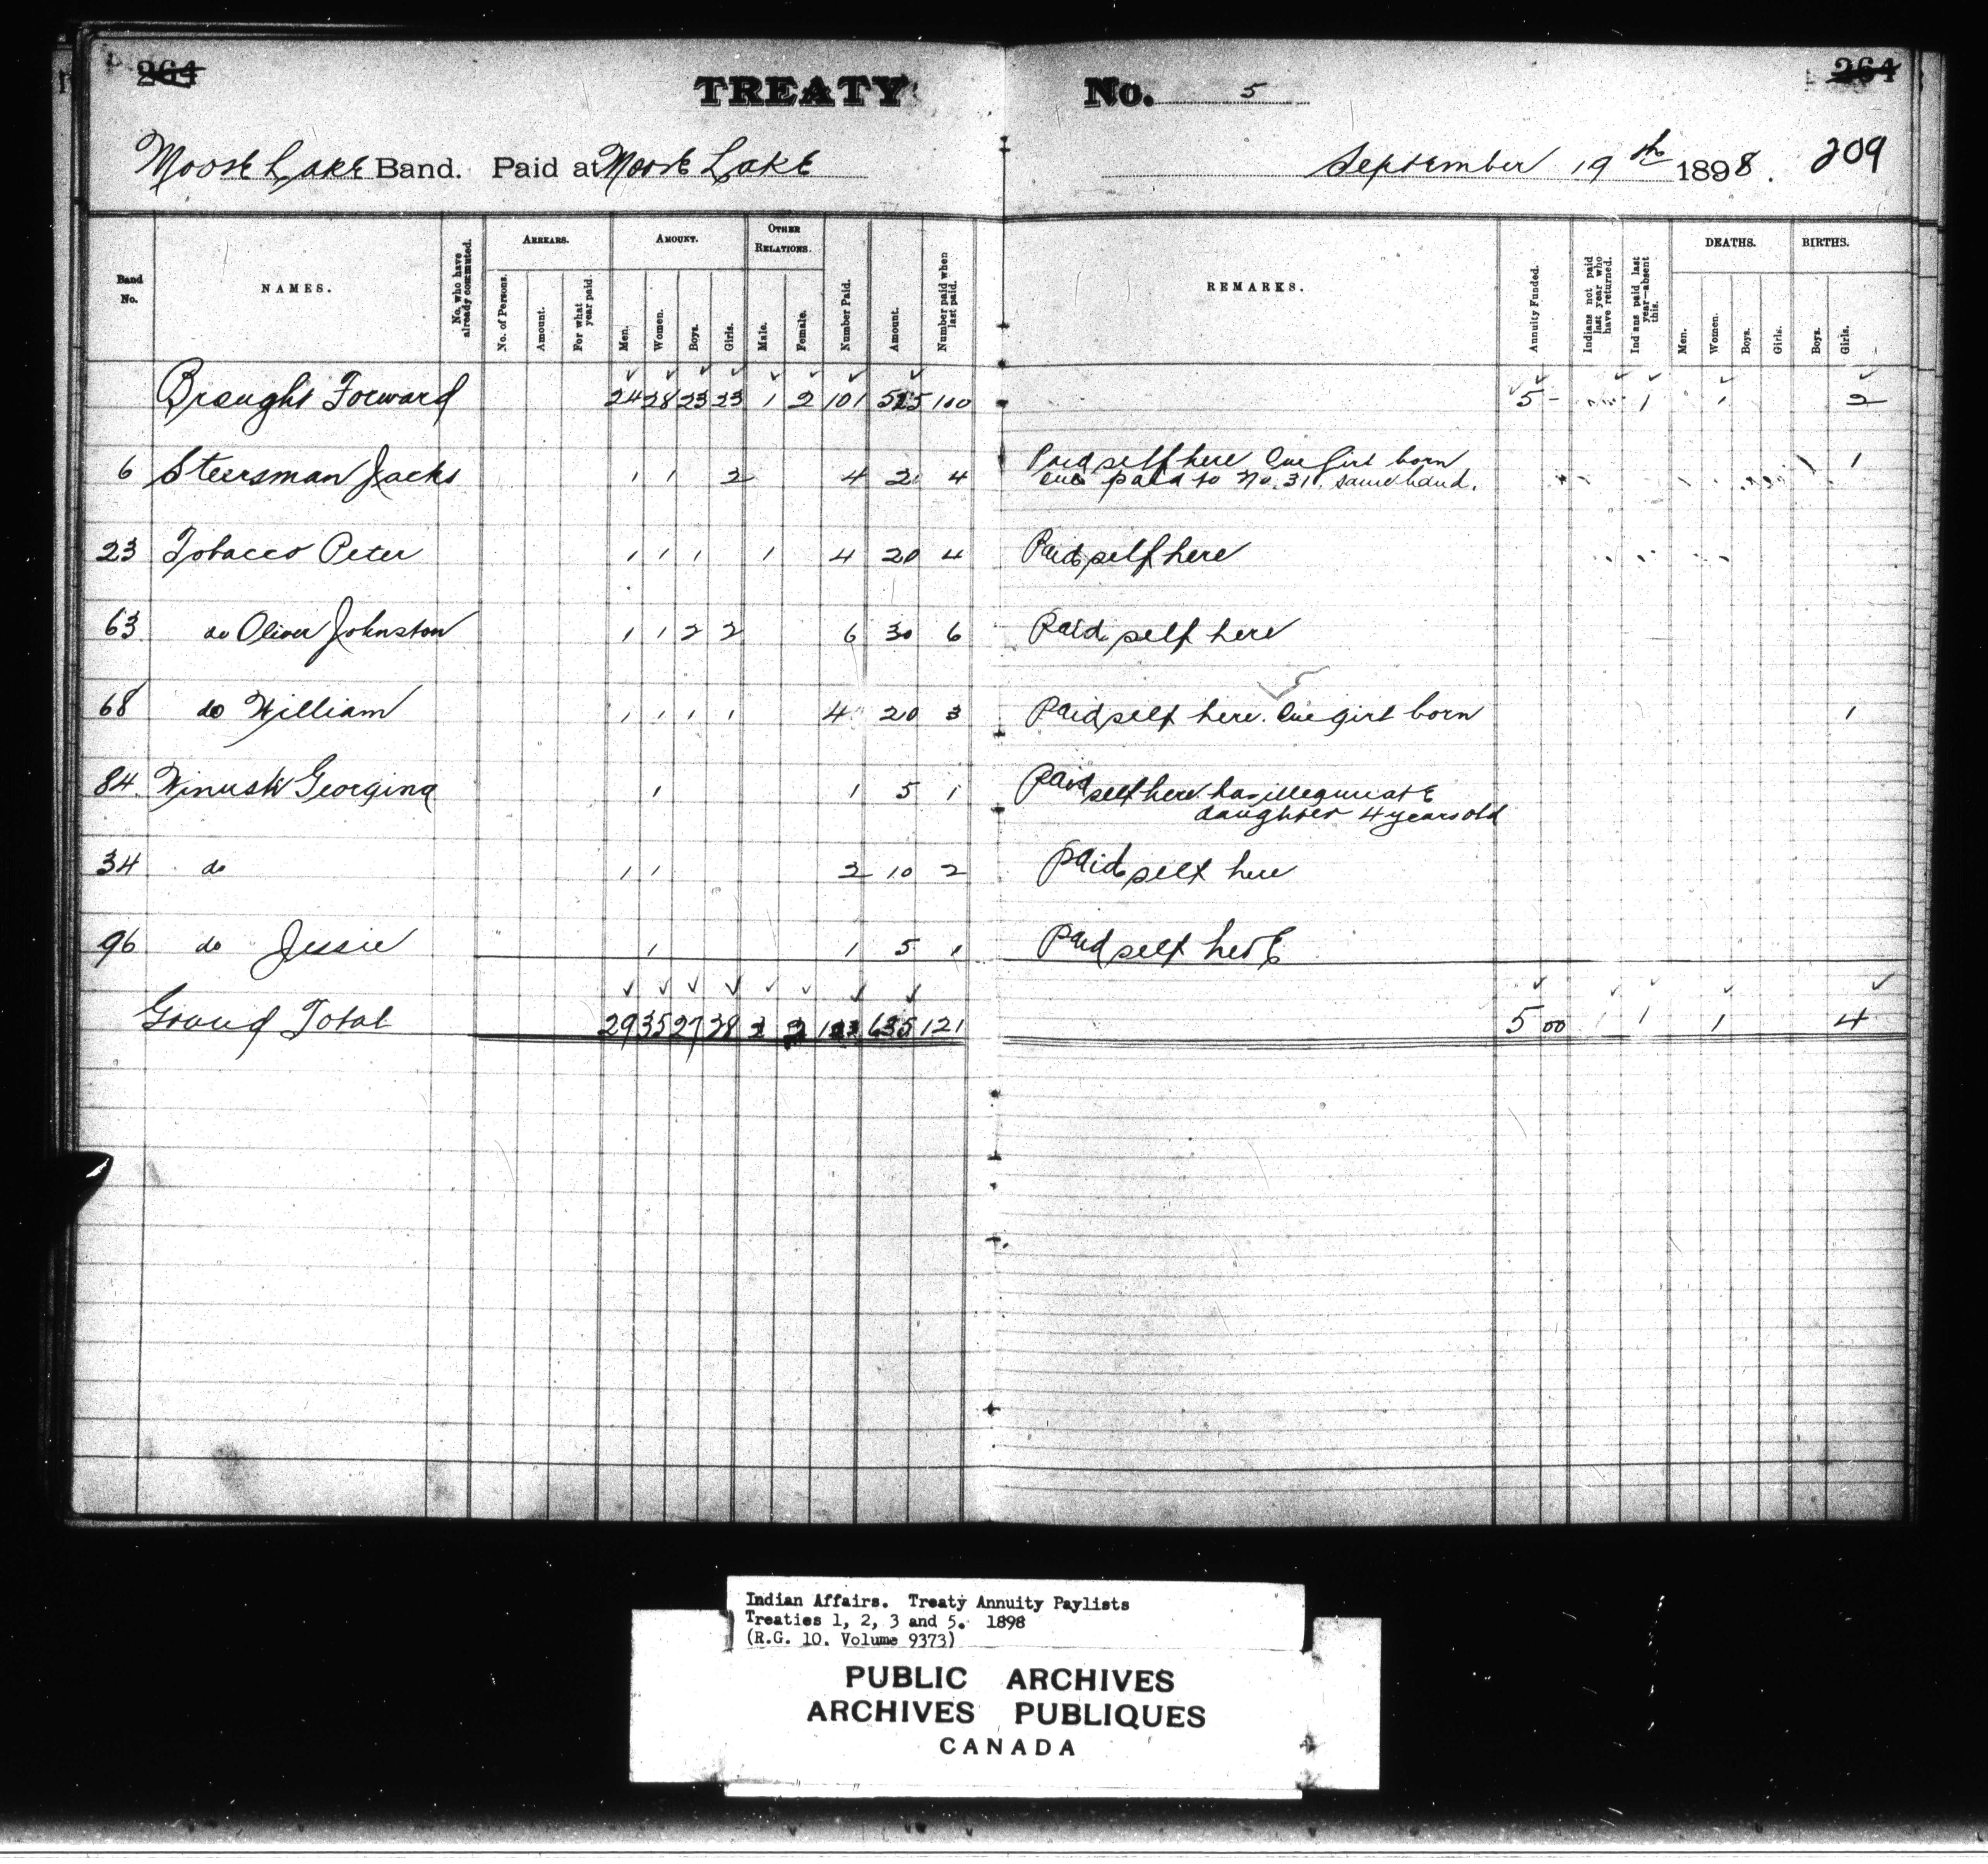 264
TREATY No. 5
264
Moose Lake Band. Paid at Moose Lake
September 19th 1898.
209
Band No.
NAMES.
No. who have already commuted.
ARREARS.
No. of Persons.
Amount.
For what year paid.
AMOUNT.
Men.
Women.
Boys.
Girls.
OTHER RELATIONS.
Male.
Female.
Number Paid.
Amount.
Number paid when last paid.
REMARKS.
Annuity Funded.
Indians not paid last year who have returned.
Indians paid last year—absent this.
DEATHS.
Men.
Women.
Boys.
Girls.
BIRTHS.
Boys.
Girls.
Brought Forward 24 28 23 23 1 2 101 100 5 - 1 1 2
6 Steersman Jacks 1 1 2 4 20 4 Paid self here One Girl born 1
one paid to No. 31. same band.
23 Tobacco Peter 1 1 1 1 4 20 4 Paid self here
63 do Oliver Johnston 1 1 2 2 6 30 6 Paid self here
68 do William 1 1 1 1 4 20 3 Paid self here. One girl born 1
84. Winusk Georgina 1 1 5 1 Paid self here has illegimate
daughter 4 years old
34 do 1 1 2 10 2 Paid self here
96 do Jessie 1 1 5 1 Paid self here
Grand Total 29 35 27 28 2 2 123 635 121 5 00 1 1 1 4
Indian Affairs. Treaty Annuity Paylists
Treaties 1, 2, 3 and 5. 1898
(R.G. 10. Volume 9373)
PUBLIC ARCHIVES
ARCHIVES PUBLIQUES
CANADA